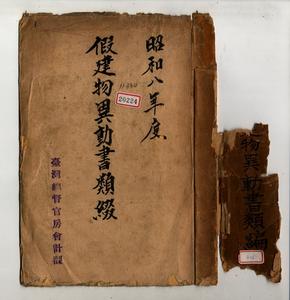 昭和八年度
假建物異動書類綴
20224
臺灣總督官房會計課
物異動書類編